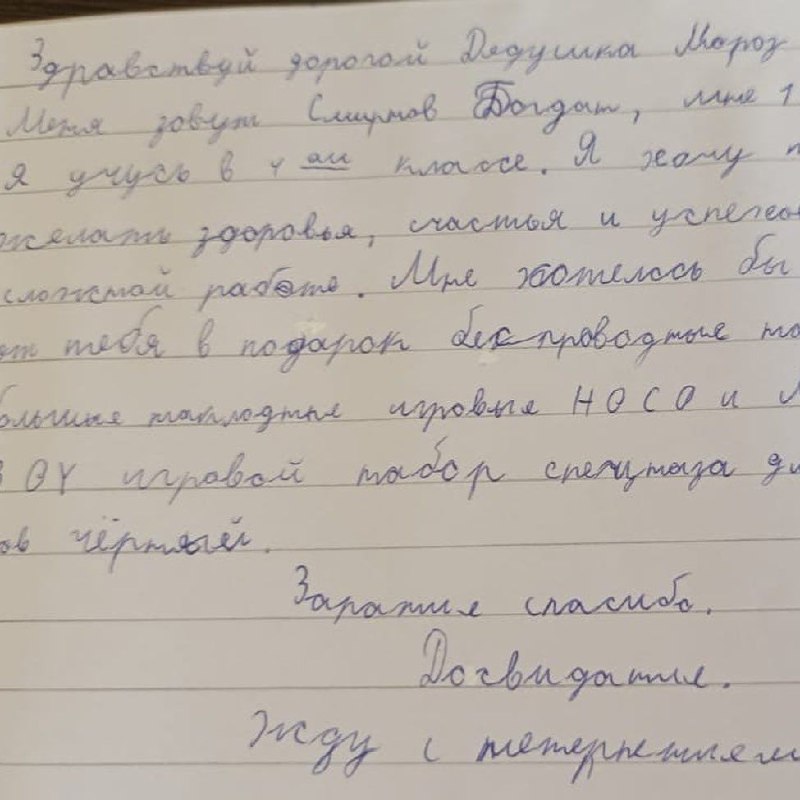 Здравствуй дорогой Дедушка Мороз
Меня зовут Смирнов Богдан, мне 1
я учусь в 4 ом классе. Я хочу п
ожелать здоровья, счастья и успехов
сложной работе. Мне хотелось бы
от тебя в подарок беспроводные на
большие накладные игровые HOCO и
BOY игровой набор спецназа дл
ов чёрный.
Заранне спасибо.
Досвидание.
Жду с нетерпением